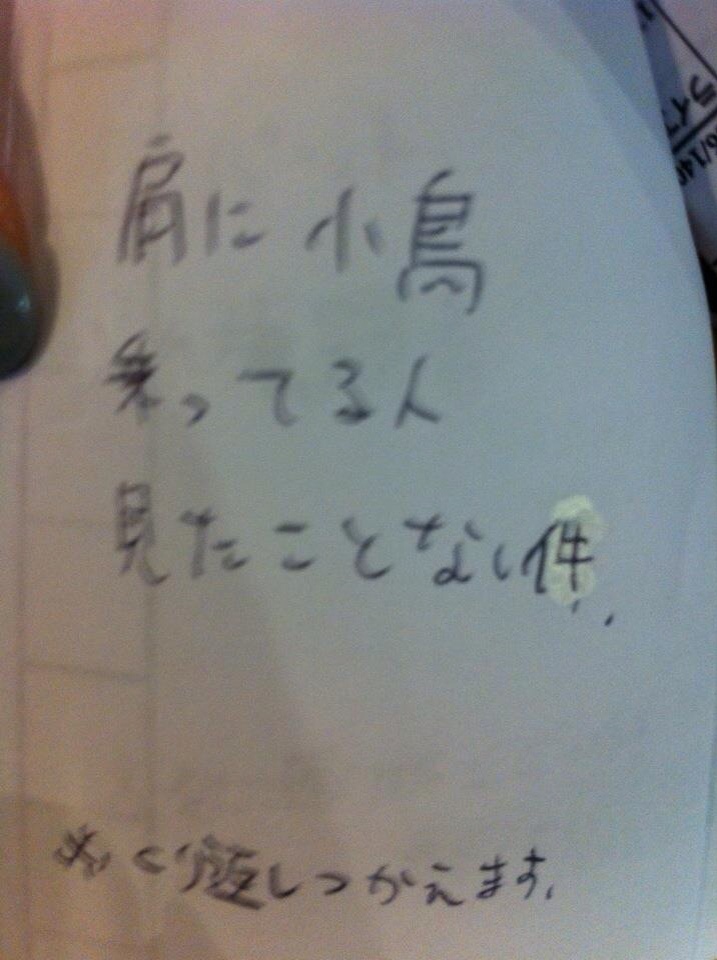 肩に小鳥
乗ってる人
見たことない件、、
しつかえます、
ライフ
6/140